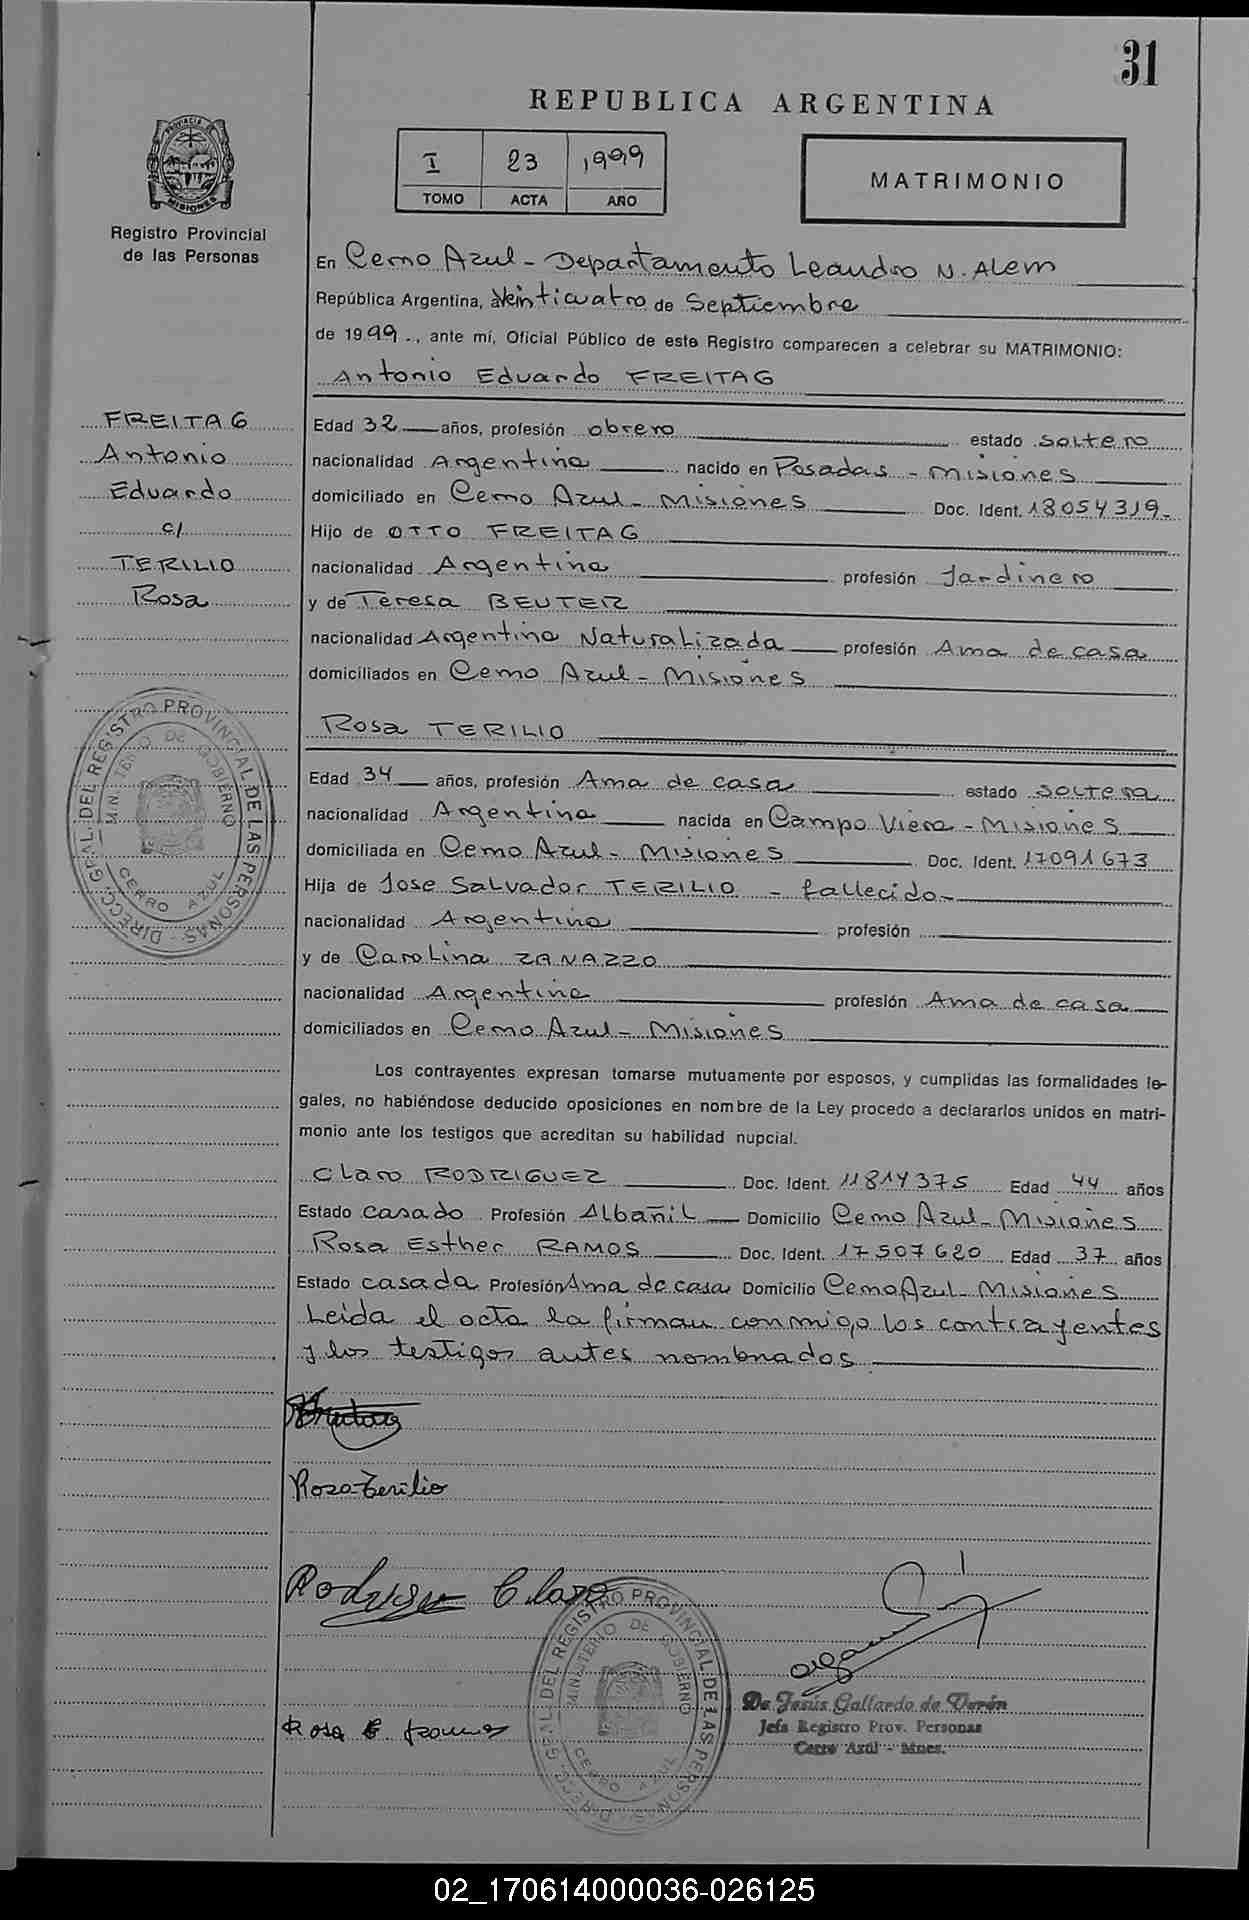 31
REPUBLICA ARGENTINA
I 23 1999
TOMO ACTA AÑO
MATRIMONIO
PROVINCIA DE
MISIONES
Registro Provincial
de las Personas
En Cerro Azul - Departamento Leandro N. Alem
República Argentina, a veinticuatro de Septiembre
de 1999 -, ante mí, Oficial Público de este Registro comparecen a celebrar su MATRIMONIO:
Antonio Eduardo FREITAG
FREITAG
Antonio
Eduardo
c/
TERILIO
Rosa
Edad 32 años, profesión obrero estado soltero
nacionalidad Argentina nacido en Posadas - Misiones
domiciliado en Cerro Azul - Misiones Doc. Ident. 18054319-
Hijo de OTTO FREITAG
nacionalidad Argentina profesión Jardinero
y de Teresa BEUTER
nacionalidad Argentina Naturalizada profesión Ama de casa
domiciliados en Cerro Azul - Misiones
Rosa TERILIO
Edad 34 años, profesión Ama de casa estado soltera
nacionalidad Argentina nacida en Campo Viera - Misiones
domiciliada en Cerro Azul - Misiones Doc. Ident. 17091673
Hija de Jose Salvador TERILIO - fallecido -
nacionalidad Argentina profesión
y de Carolina ZANAZZO
nacionalidad Argentina profesión Ama de casa
domiciliados en Cerro Azul - Misiones
DIRECC. GRAL. DEL REGISTRO PROVINCIAL DE LAS PERSONAS
MINISTERIO DE GOBIERNO
CERRO AZUL
Los contrayentes expresan tomarse mutuamente por esposos, y cumplidas las formalidades le-
gales, no habiéndose deducido oposiciones en nombre de la Ley procedo a declararlos unidos en matri-
monio ante los testigos que acreditan su habilidad nupcial.
Claro RODRIGUEZ Doc. Ident. 11814375 Edad 44 años
Estado casado Profesión Albañil Domicilio Cerro Azul - Misiones
Rosa Esther RAMOS Doc. Ident. 17507620 Edad 37 años
Estado casada Profesión Ama de casa Domicilio Cerro Azul - Misiones
Leida el acta la firman conmigo los contrayentes
y los testigos antes nombrados
Rosa Terilio
Rodriguez Claro
Rosa E. Ramos
DIRECC. GRAL. DEL REGISTRO PROVINCIAL DE LAS PERSONAS
MINISTERIO DE GOBIERNO
CERRO AZUL
De Jesús Gallardo de Verón
Jefa Registro Prov. Personas
Cerro Azul - Mnes.
02_170614000036-026125